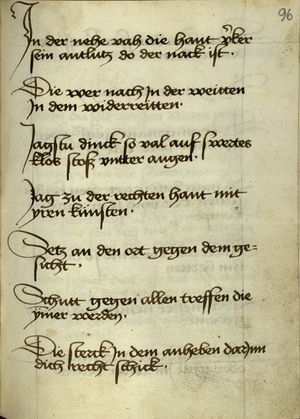 96
In der nehe vah die haut vber
sein antlutz do der nack ist ·
Die wer nach In der weitten
In dem widerreitten ·
Jagstu dinck so val auf swertes
klos stoß vnter augen ·
Jag zu der rechten hant mit
yren künsten ·
Setz an den ort gegen dem ge=
sicht ·
Schutt gegen allen treffen die
ymer werden ·
Die sterck In dem anheben darinn
dich recht schick ·